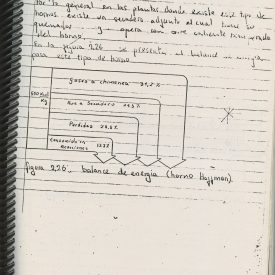 Por lo general en las plantas donde existe este tipo de
hornos existe un secadero adjunto el cual tiene sus
quemadores y opera con aire caliente
del horno.
En la figura 2.26 se presenta el balance de energía
para este tipo de horno
gases a chimenea
Aire a Secadero
Perdidas
Consumido en
Reacciones
kg
figura 2.26. balance de energía (horno Hoffman).